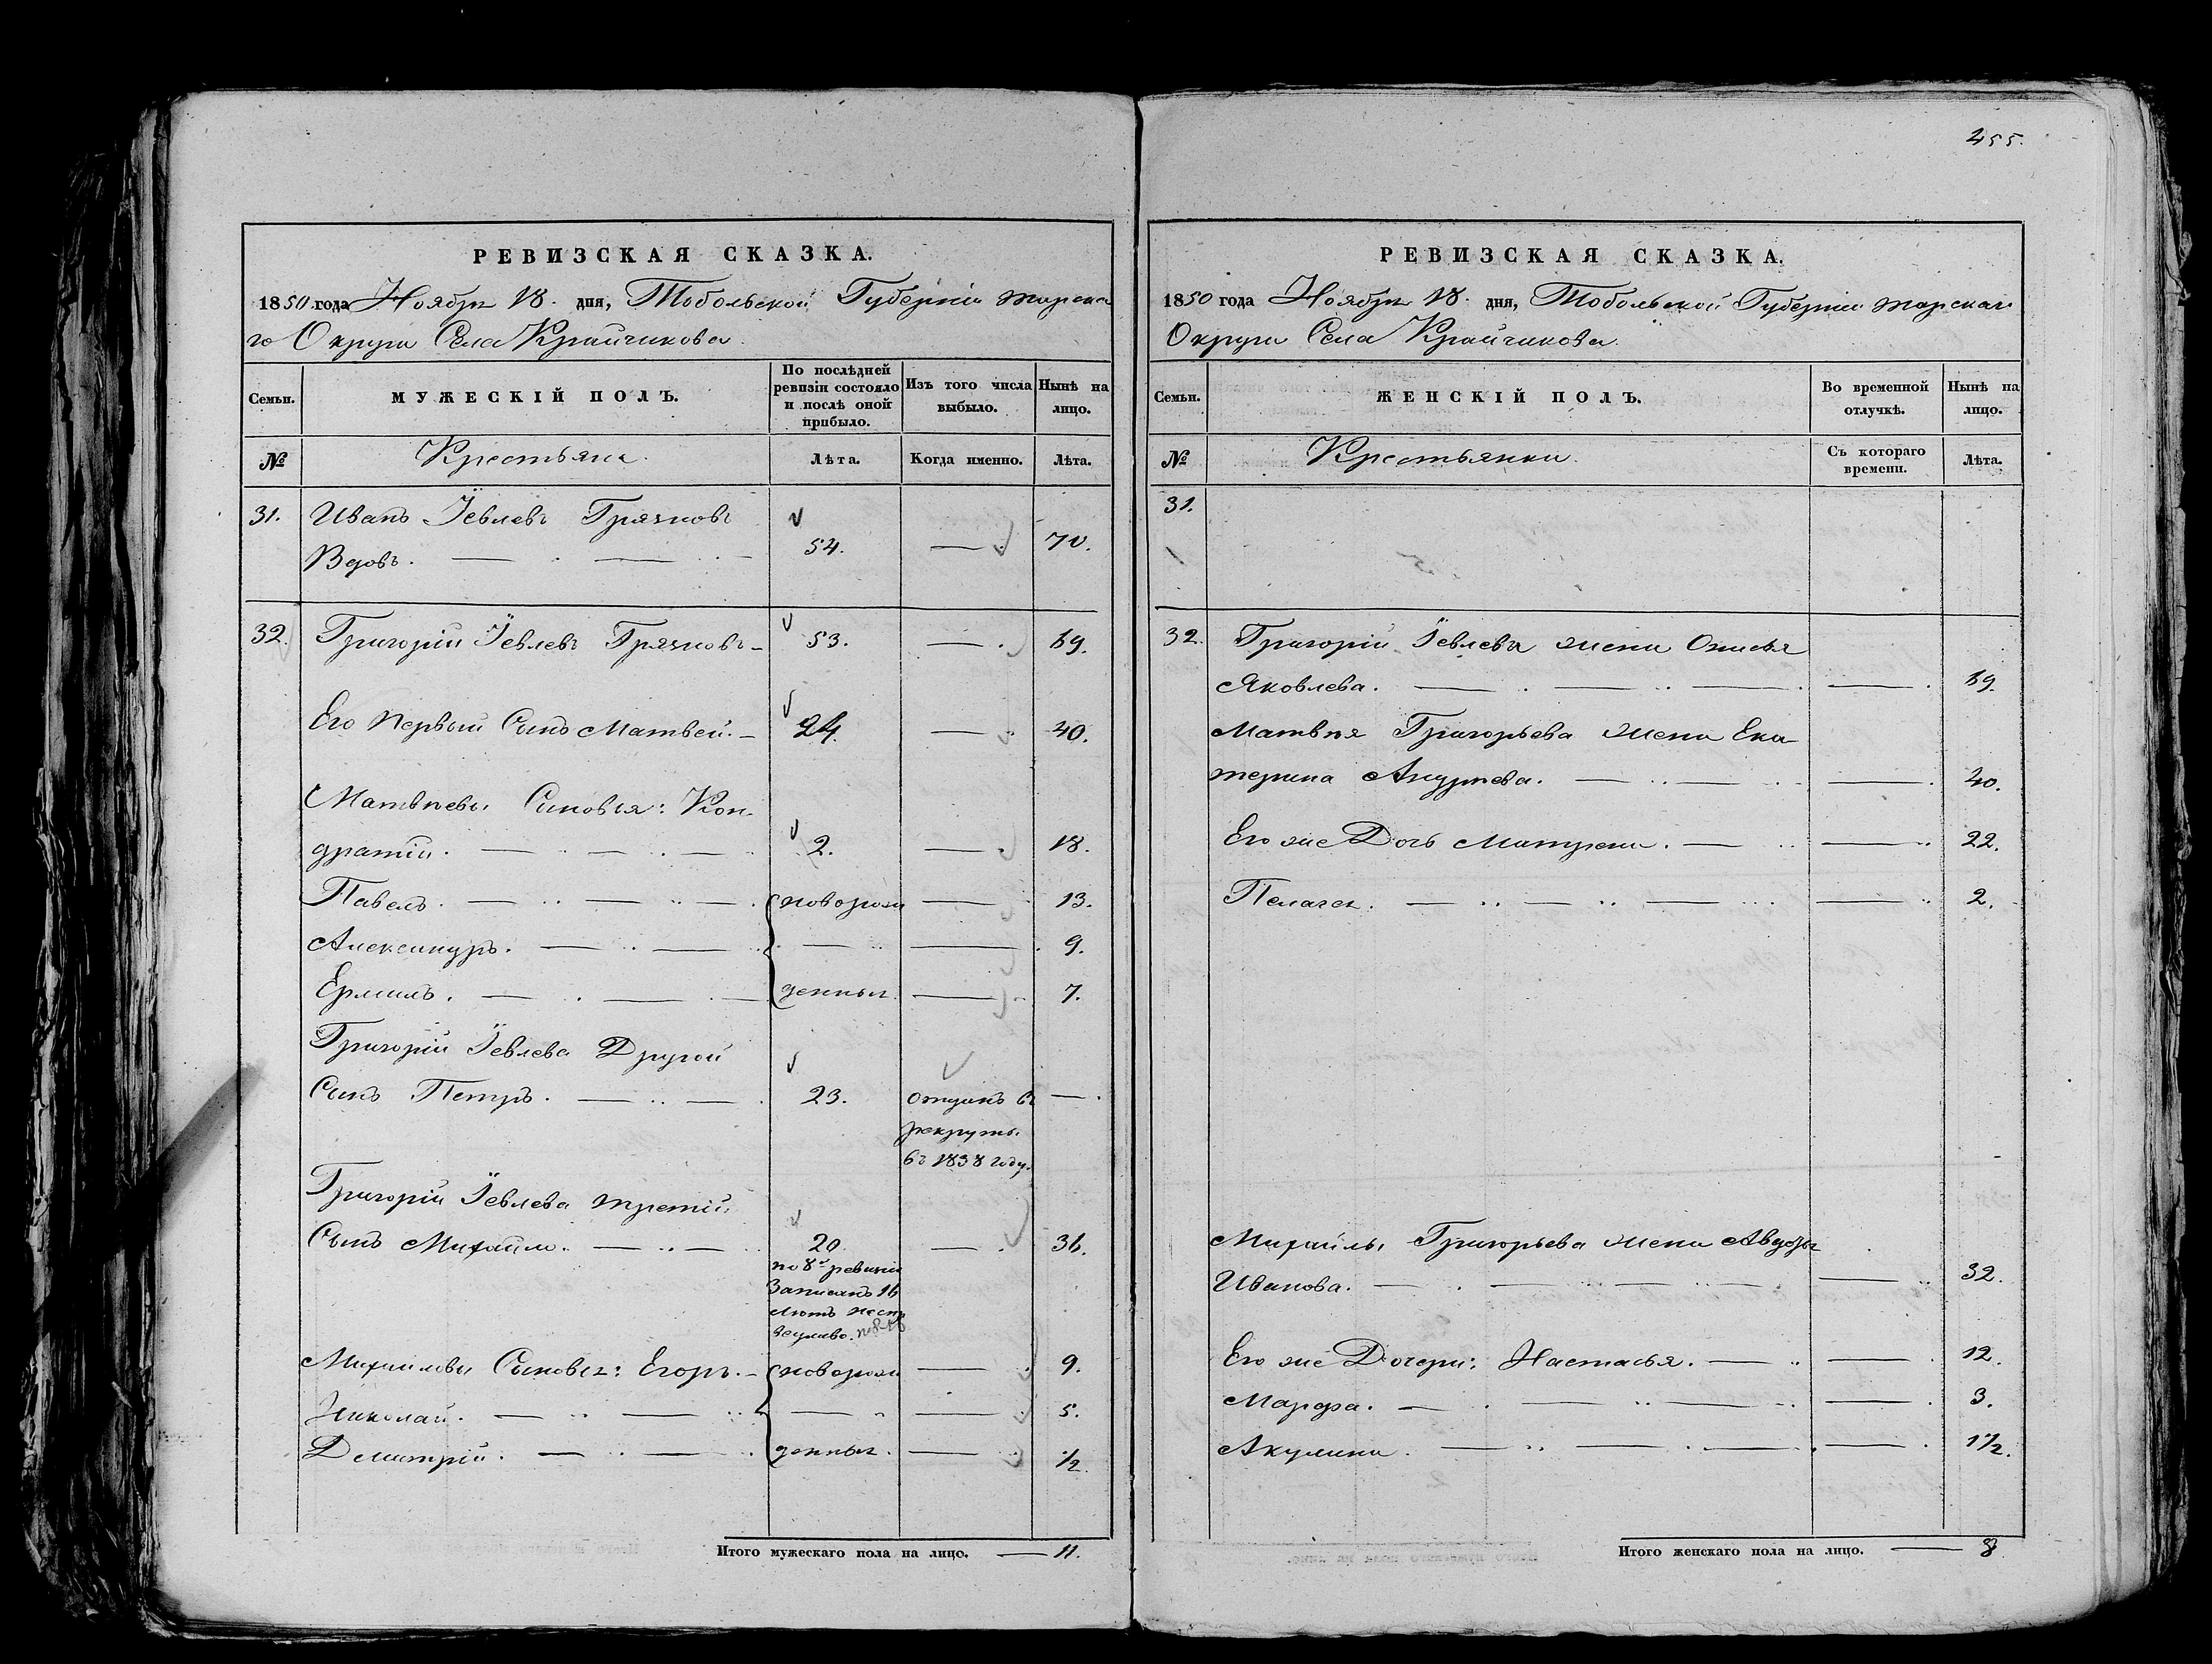 РЕВИЗСКАЯ СКАЗКА.
1850 года Ноября 18. дня, Тобольской Губерніи Тарска
го Округа Села Крайчикова.
Семьи.
МУЖЕСКІЙ ПОЛЪ.
По послѣдней ревизіи состояло и послѣ оной прибыло.
Изъ того числа выбыло.
Нынѣ на лицо.
№
Крестьяне.
Лѣта.
Когда именно.
Лѣта.
31. Иванъ Іевлевъ Грязновъ
Вдовъ. 54. — 70.
32. Григорій Іевлевъ Грязновъ 53. — 69.
Его первый Сынъ Матвей. 24. — 40.
Матвѣевы Сыновья: Кон-
дратій. 2. — 18.
Павелъ. новорож — 13.
Александръ. — — 9.
Ермилъ. денныя — 7.
Григорія Іевлева Другой
Сынъ Петръ. 23. отданъ въ —
рекруты.
въ 1838 году.
Григорія Іевлева третій
Сынъ Михайло. 20. — 36.
по 8й ревизіи
Записанъ 16
лѣтъ неспр
ведливо.
Михайловы Сыновья: Егоръ. новорож — 9.
Николай. — — 5.
Дмитрій. денныя. — ½.
Итого мужескаго пола на лицо. — 11.
455.
РЕВИЗСКАЯ СКАЗКА.
1850 года Ноября 18. дня, Тобольской Губерніи Тарскаго
Округа Села Крайчикова.
Семьи.
ЖЕНСКІЙ ПОЛЪ.
Во временной отлучкѣ.
Нынѣ на лицо.
№
Крестьянки.
Съ котораго времени.
Лѣта.
31.
32. Григорія Іевлева жена
Яковлева. — 69.
Матвѣя Григорьева жена Ека
терина Андреева. — 40.
Его же Дочь Матрена. — 22.
Пелагея. — 2.
Михайлы Григорьева жена Авдотья
Иванова. — 32.
Его же Дочери: Настасья. — 12.
Марфа. — 3.
Акулина. — 1½.
Итого женскаго пола на лицо. — 8